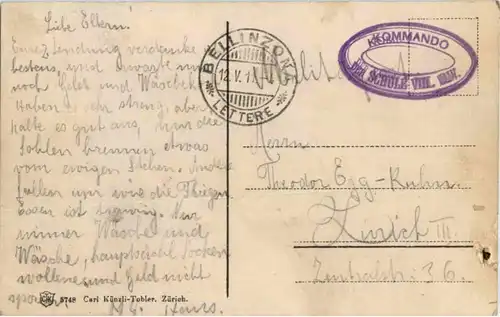 Liebe Eltern!
Eure Sendung verdanke
bestens, und erwarte nur
noch Geld und Wäsche.
Haben es sehr streng, aber
halte es gut aus, nur die
Sohlen brennen etwas
vom ewigen Stehen. Andere
fallen um wie die Fliegen
Essen ist
immer Wäsche und
Wäsche, hauptsächl. Socken
wollene, und Geld nicht
sparen. Hans.
BELLINZONA
12.V.1
LETTERE
Militär
KOMMANDO
DER SCHULE VIII.
Herrn
Theodor Egg-Kuhn
Zürich III.
Zentralstr. 36.
5748 Carl Künzli-Tobler, Zürich.